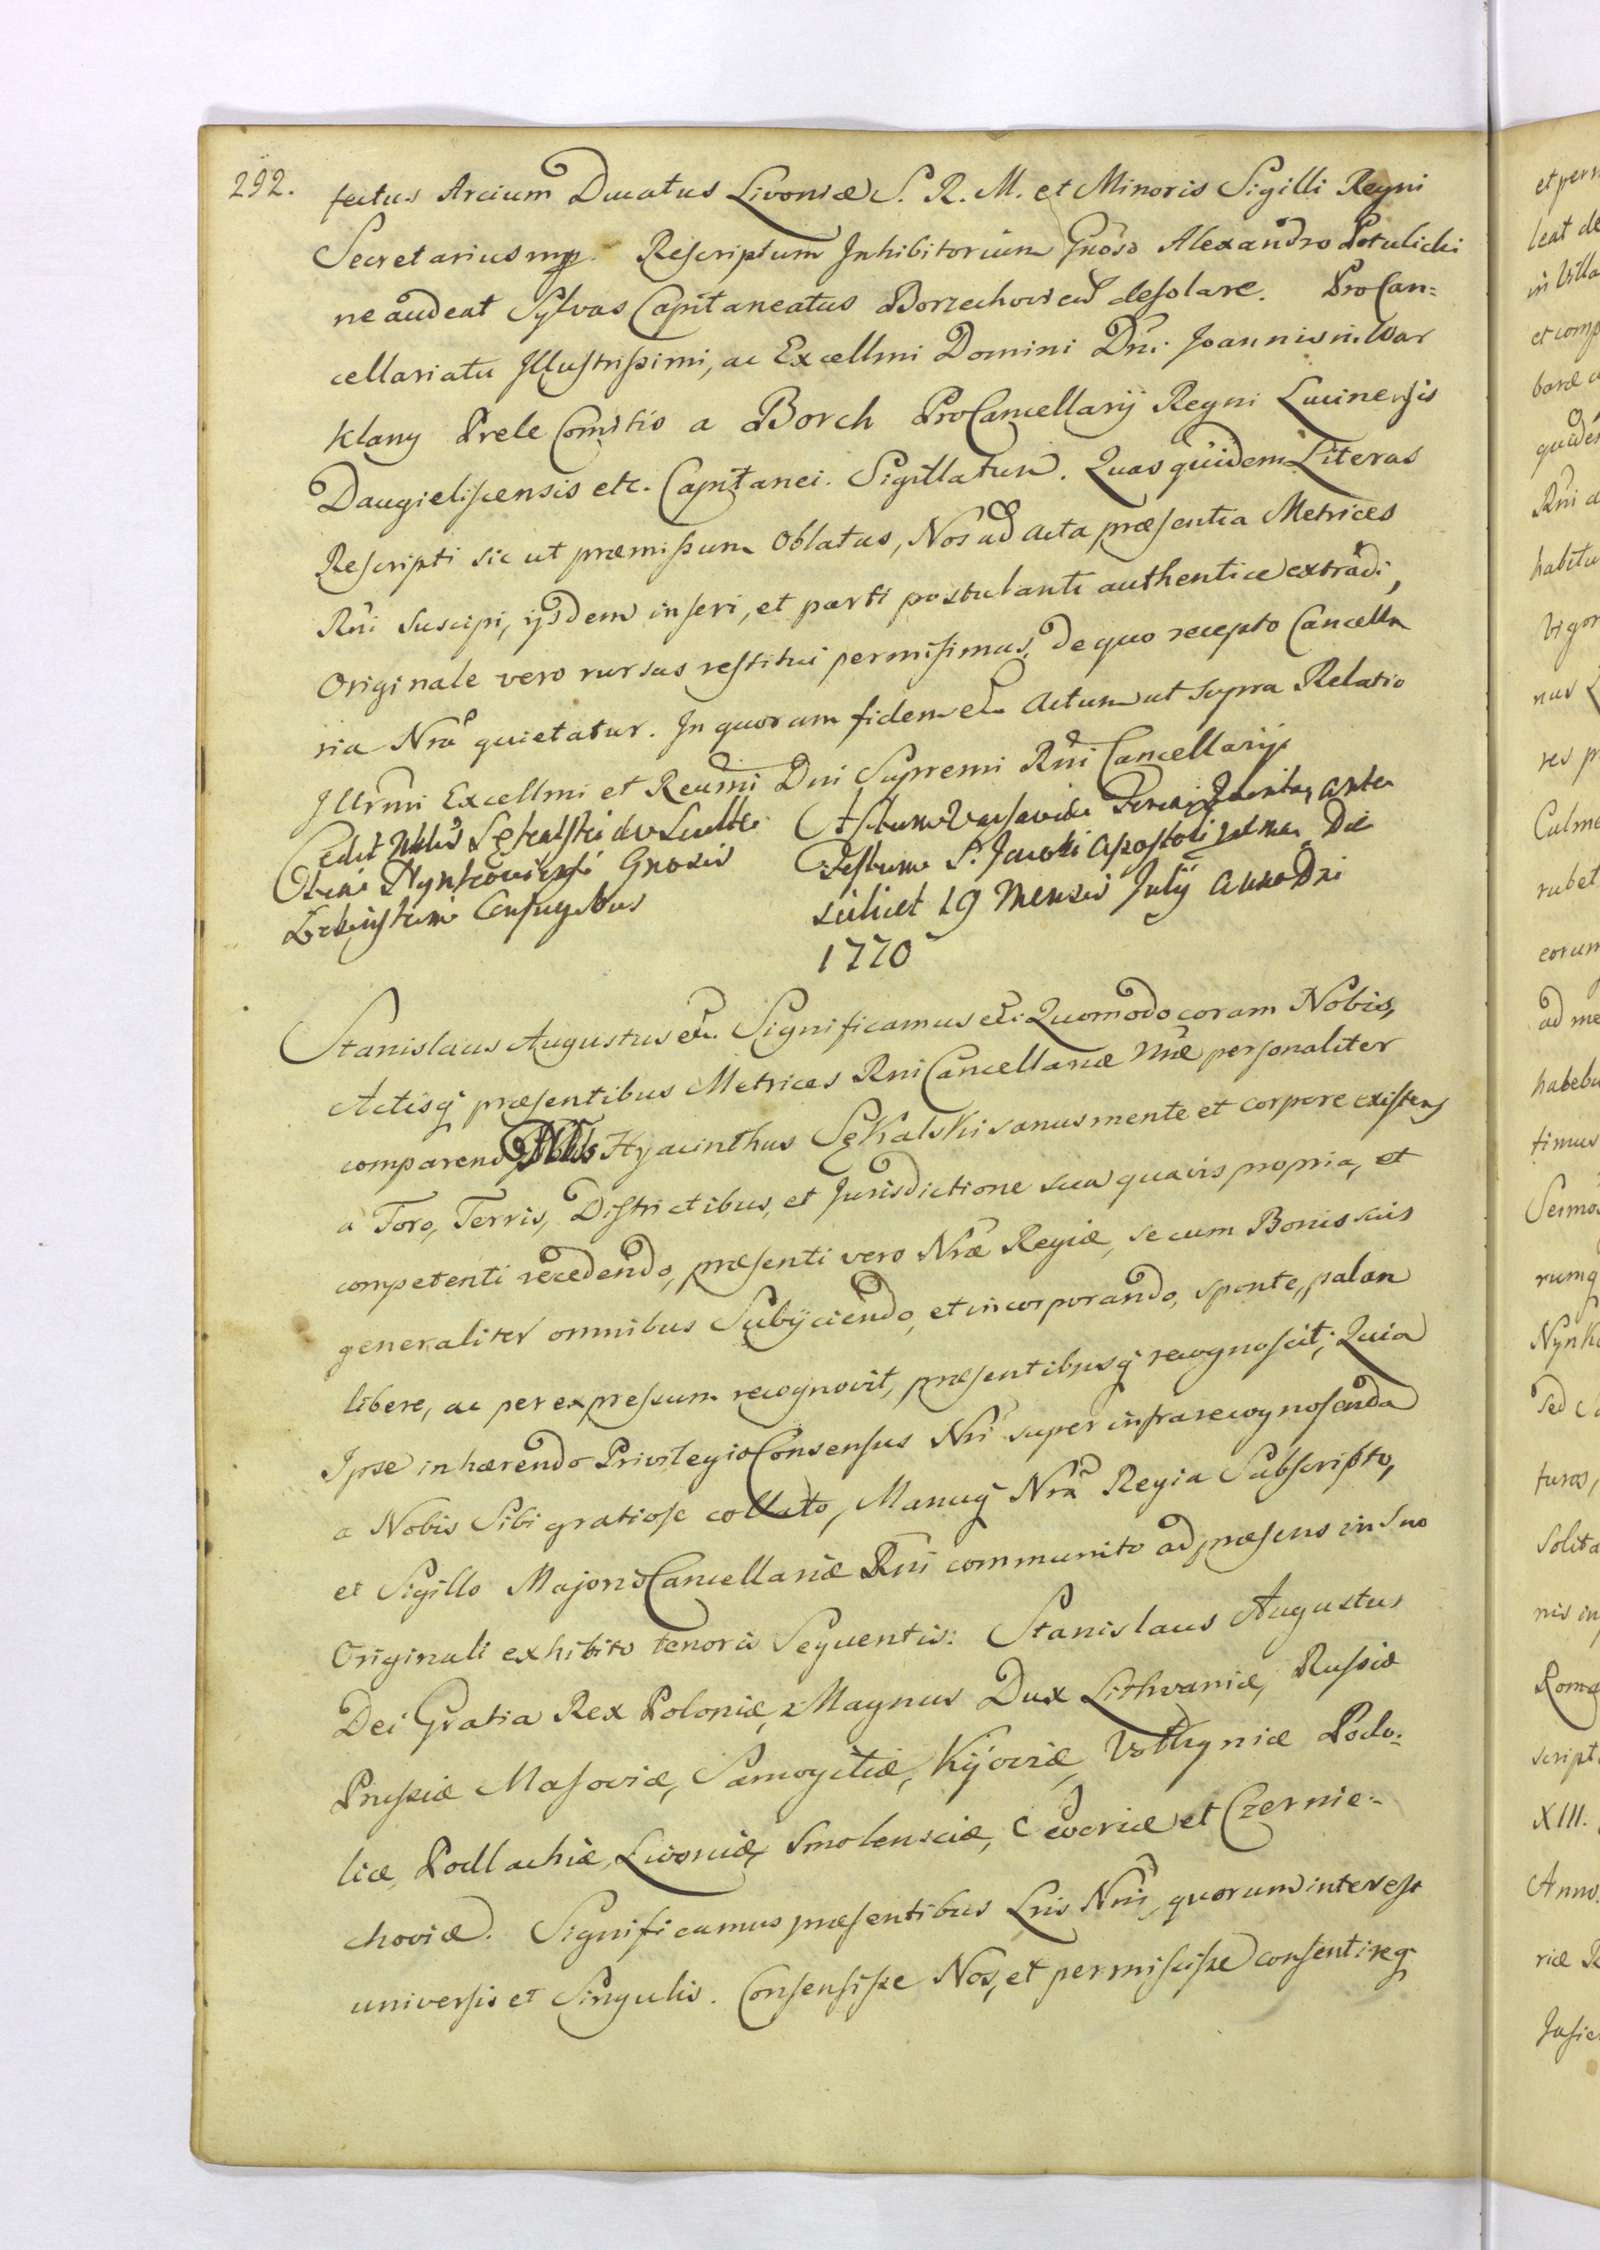 292.
fectus Arcium Ducatus Livoniæ S. R. M. et Minoris Sigilli Regni
Secretarius mp. Rescriptum Inhibitorium Gnoso Alexandro Potulicki
ne audeat Sylvas Capitaneatus Borzechovien desolare. ProCan=
cellariatu Illustrissimi, ac Excellmi Domini Dni Joannis in War
Klany Prele Comitis a Borch ProCancellarij Regni Lucinensis
Daugieliscensis etc. Capitanei. Sigillatum. Quas quidem Literas
Rescripti sic ut præmissum Oblatas, Nos ad acta præsentia Metrices
Rni suscipi, ijsdem inseri, et parti postulanti authentice extradi,
Originale vero rursus restitui permisimus, de quo recepto Cancella
ria Nra quietatur. In quorum fidem etc. Actum ut supra Relatio
Illrmi Excellmi et Reumi Dni Supremi Rni Cancellarij
Cedit Nblis Sękalski de Scultetia
Nynkoviensi Gnosis
Conjugibus
Actum Varsaviæ Feria Quinta ante
Festum S. Jacobi Apostoli Die
scilicet 19 Mensis Julij Anno Dni
1770
Stanislaus Augustus etc. Significamus etc. Quomodo coram Nobis,
Actisq præsentibus Metrices Rni Cancellariæ Nræ personaliter
comparens Nblis Hyacinthus Sękalski sanus mente et corpore existens
a Foro, Terris, Districtibus, et Jurisdictione sua quavis propria, et
competenti recedendo, præsenti vero Nræ Regiæ, se cum Bonis suis
generaliter omnibus Subijciendo, et incorporando, sponte, palam
libere, ac per expressum recognovit, præsentibusq recognoscit; Quia
Ipse inhærendo Privilegio Consensus Nri super infrarecognoscenda
a Nobis Sibi gratiose collato, Manuq Nra Regia Subscripto,
et Sigillo Majoris Cancellariæ Rni communito ad præsens in Suo
Originali exhibito tenoris Sequentis: Stanislaus Augustus
Dei Gratia Rex Poloniæ, Magnus Dux Lithvaniæ, Russiæ
Prussiæ Masoviæ, Samogitiæ, Kijoviæ, Volhyniæ Podo:
liæ, Podlachiæ, Livoniæ, Smolensciæ, Severiæ et Czernie:
choviæ. Significamus præsentibus Lris Nris, quorum interest
universis et Singulis. Consensisse Nos, et permisisse consentireq
et perm
leat de
in Villa
et comp
baræ
quidem
Rni
habitu
vigor
nus
res p
Culme
rubet
eorum
ad me
habebu
timus
Sermo
rumq
Nynk
sed c
turos,
Solita
nis in
Roma
script
XIII.
Anno
riæ R
Jusie